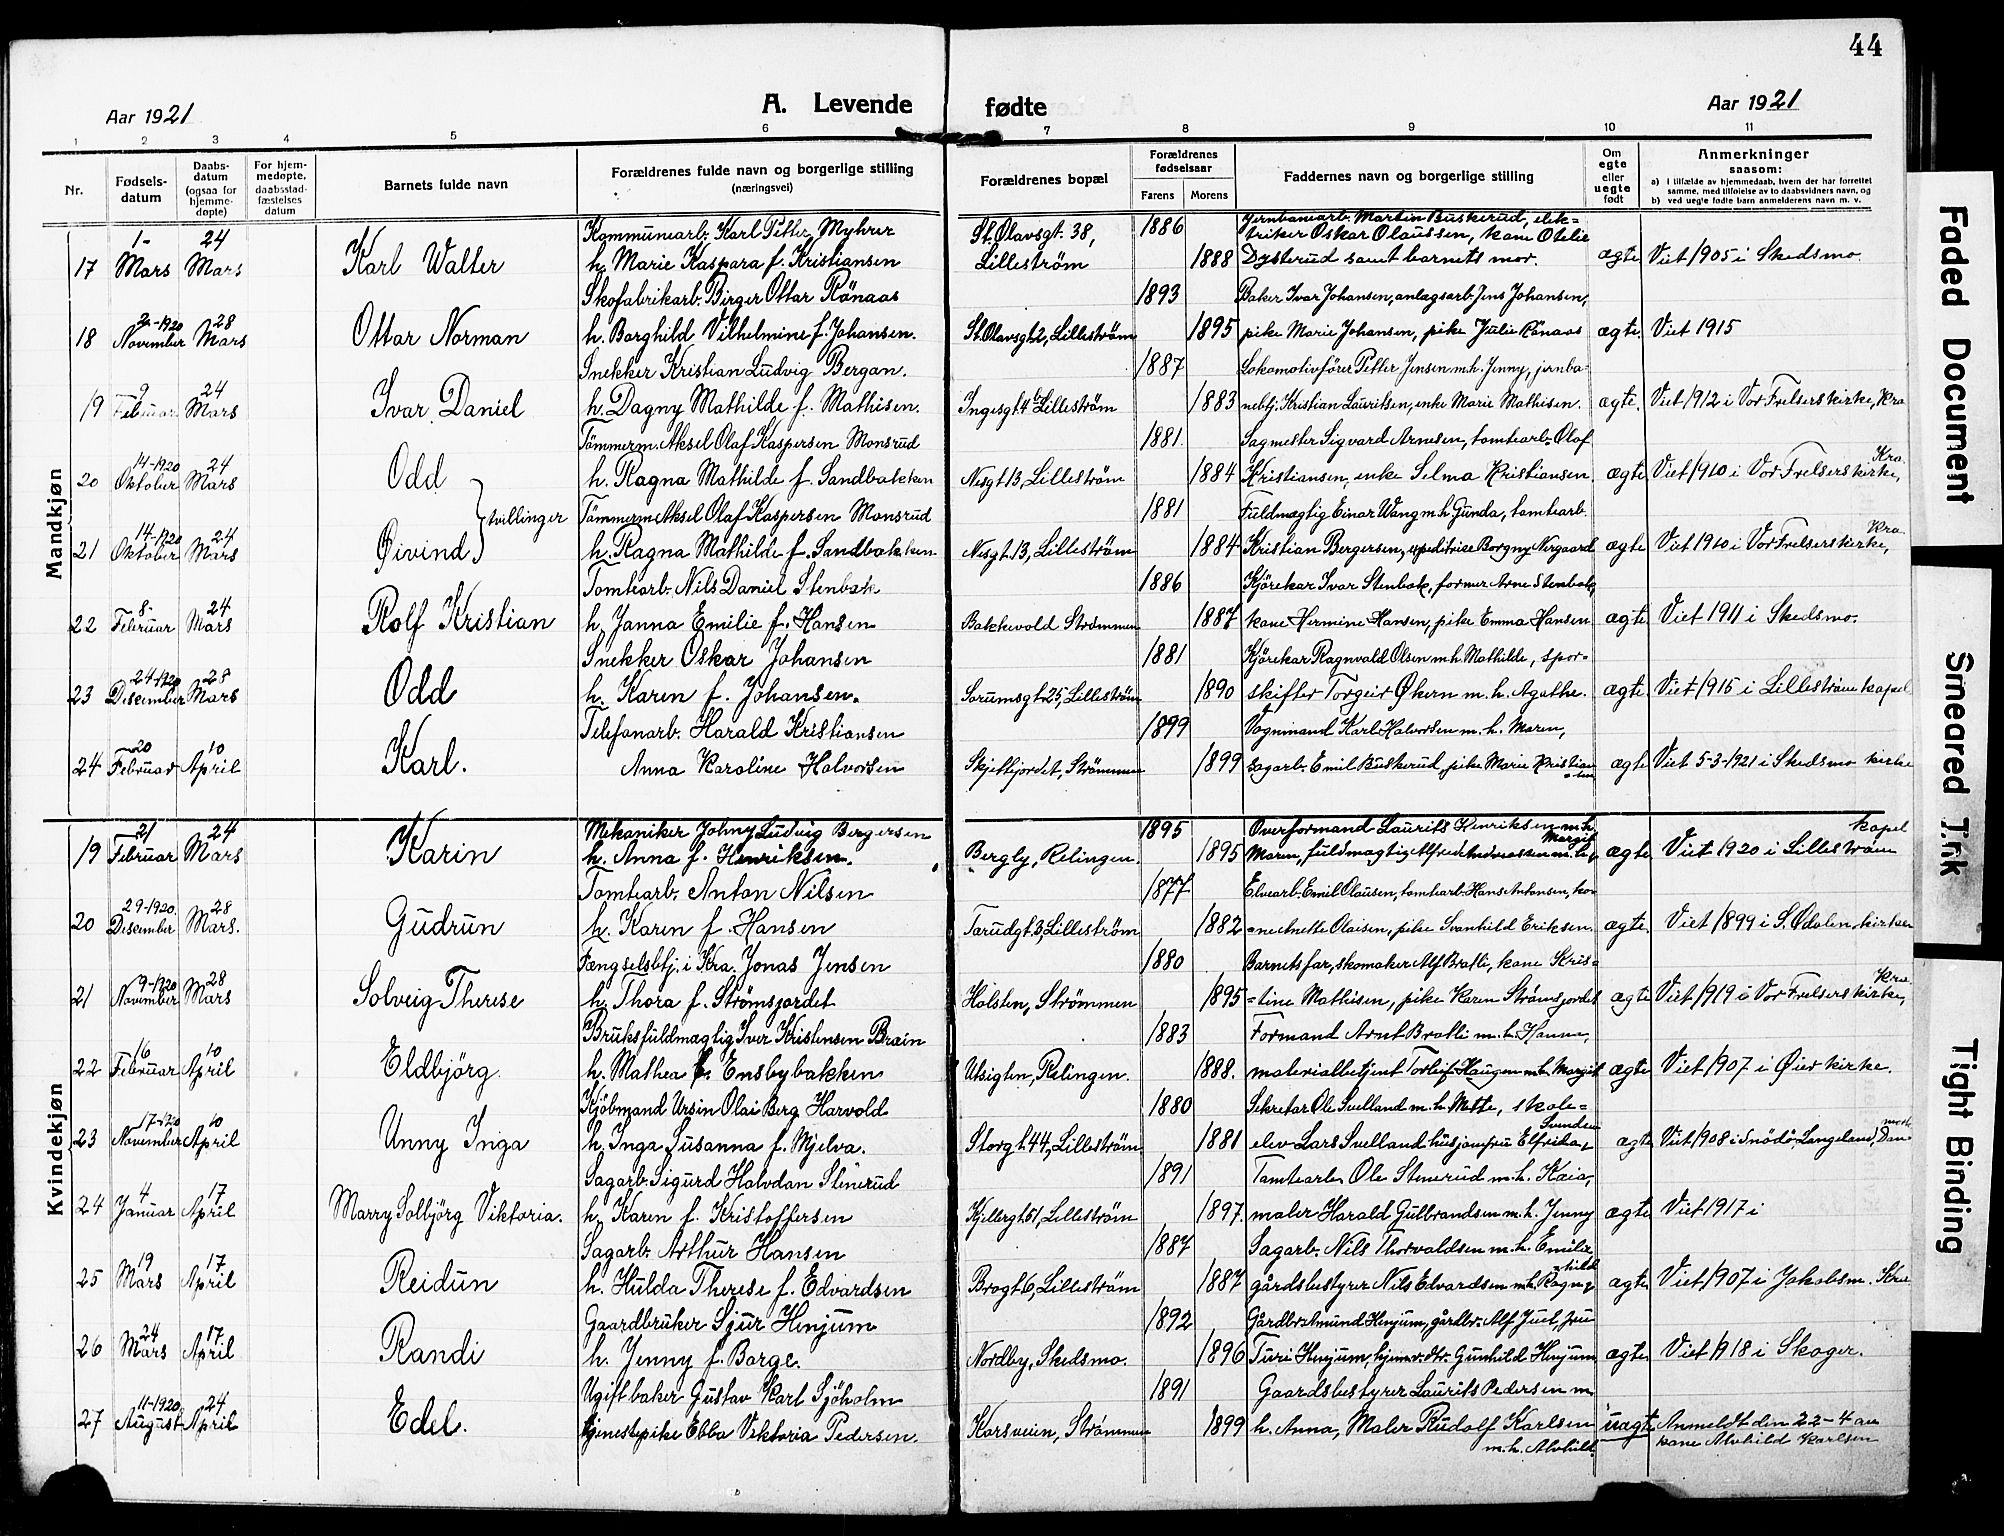 44
Aar 1921 A. Levende fødte Aar 1921
1 2 3 4 5 6 7 8 9 10 11
Nr. Fødsels-datum Daabs-datum (ogsaa for hjemme-døpte) For hjem-medøpte, daabsstad-fæstelses datum Barnets fulde navn Forældrenes fulde navn og borgerlige stilling (næringsvei) Forældrenes bopæl Forældrenes fødselsaar Farens Morens Faddernes navn og borgerlige stilling Om egte eller uegte født Anmerkninger saasom:
a) i tilfælde av hjemmedaab, hvem der har forrettet samme, med tilføielse av to daabsvidners navn, og
b) ved uegte fødte barn anmelderens navn m. v.
Mandkjøn
Kommunearb. Karl Petter Myhrer St. Olavsgt. 38, 1886 Jernbanearb. Martin Buskerud, elek=
triker Oskar Olaussen, kone Otelie
17 1- Mars 24 Mars Karl Walter h. Marie Kaspara f. Kristiansen Lilleström 1888 Dysterud samt barnets mor. ægte Viet 1905 i Skedsmo.
Skofabrikarb. Birger Ottar Rönaas 1893 Baker Ivar Johansen, anlægsarb. Jens Johansen,
18 2-1920 November 28 Mars Ottar Norman h. Borghild Vilhelmine f. Johansen. St. Olavsgt. 2, Lilleström 1895 pike Marie Johansen, pike Julie Rönaas ægte. Viet 1915
Snekker Kristian Ludvig Bergan. 1887 Lokomotivförer Petter Jensen m.h. Jenny, jernba-
19 9 Februar 24 Mars Ivar Daniel h. Dagny Mathilde f. Mathisen. Ingesgt. 4 Lilleström 1883 nebtj. Kristian Lauritsen, enke Marie Mathisen. ægte. Viet 1912 i Vor Frelsers kirke, Kra
Tömmerm. Aksel Olaf Kaspersen Monsrud 1881. Sagmester Sigvard Arnesen, tomtearb. Olaf
20 14-1920 Oktober 24 Mars Odd h. Ragna Mathilde f. Sandbakken Nesgt. 13, Lilleström 1884 Kristiansen, enke Selma Kristiansen ægte Viet 1910 i Vor Frelsers kirke, Kra.
tvillinger Tömmerm. Aksel Olaf Kaspersen Monsrud 1881 Fuldmægtig Einar Wang m.h. Gunda, tomtearb.
21 14-1920 Oktober 24 Mars Øivind h. Ragna Mathilde f. Sandbakken Nesgt. 13, Lilleström 1884 Kristian Bergersen, expeditrice Borgny Nergaard ægte Viet 1910 i Vor Frelsers kirke, Kra.
Tomtearb. Nils Daniel Stenbæk 1886 Kjörekar Ivar Stenbæk, former Arne Stenbæk,
22 8- Februar 24 Mars Rolf Kristian h. Janna Emilie f. Hansen Bakkevold Strömmen 1887 kone Hermine Hansen, pike Emma Hansen ægte. Viet 1911 i Skedsmo.
Snekker Oskar Johansen 1881 Kjörekar Ragnvald Olsen m.h. Mathilde, spor=
23 24-1920 Desember 28 Mars Odd h. Karen f. Johansen. Sorumsgt. 25, Lilleström 1890 skifter Torgeir Økern m.h. Agathe. ægte. Viet 1915 i Lilleström kapel
Telefonarb. Harald Kristiansen 1899 Vognmand Karl Halvorsen m.h. Maren,
24 20 Februar 10 April Karl. Anna Karoline Halvorsen Skjettejordet, Strömmen 1899 sagarb. Emil Buskerud, pike Marie Kristian=sen ægte Viet 5-3-1921 i Skedsmo kirke
Kvindekjøn
Mekaniker Johny Ludvig Bergersen 1895 Overformand Laurits Henriksen m.h.
19 21 Februar 24 Mars Karin h. Anna f. Henriksen. Bergly, Relingen. 1895 Maren, fuldmægtig Alfred Andreassen m.h. Margit ægte Viet 1920 i Lilleström kapel
Tomtearb. Anton Nilsen 1877 Elvearb. Emil Olausen, tomtearb. Hans Antonsen, ko=
20 29-1920. Desember 28 Mars. Gudrun h. Karen f. Hansen Torudgt. 3, Lilleström 1882 ne Anette Olaisen, pike Svanhild Eriksen. ægte. Viet 1899 i S. Odalen kirke
Fængselsbtj. i Kra. Jonas Jensen 1880 Barnets far, skomaker Alf Bratli, kone Kris=
21 9-1920 November 28 Mars Solveig Therese h. Thora f. Strömsjordet Holsten, Strømmen 1895 =tine Mathisen, pike Karen Strömsjordet ægte Viet 1919 i Vor Frelsers kirke, Kra
Bruksfuldmægtig Iver Kristensen Bræin 1883 Formand Arnt Bratli m.h. Hanna,
22 16 Februar 10 April Eldbjörg h. Mathea E. Ensbybakken Utsigten, Relingen. 1888. materialbetjent Torleif Haugen m.h. Margit ægte Viet 1907 i Øier kirke.
Kjöbmand Ursin Olai Berg Harvold 1880 Sekretær Ole Svelland m.h. Mette, skole=
23 17-1920 November 10 April Unny Inga h. Inga Susanna f. Mjelva. Storgt. 44, Lilleström 1881 elev Lars Svelland husjomfru Elfrika Svendsen ægte Viet 1908 i Snödö, Langeland, Danmark
Sagarb. Sigurd Halvdan Stenerud 1891 Tomtearb. Ole Stenerud m.h. Kaia,
24 4 Januar 17 April Marry Solbjörg Viktoria. h. Karen f. Kristoffersen Kjellergt. 51, Lilleström 1897. maler Harald Gulbrandsen m.h. Jenny ægte Viet 1917 i
Sagarb. Arthur Hansen 1887 Sagarb. Nils Thorvaldsen m.h. Emilie,
25 19 Mars 17 April Reidun h. Hulda Therese f. Edvardsen Brogt. 6, Lilleström 1887 gårdsbestyrer Nils Edvardsen m.h. Ragn=hild ægte Viet 1907 i Jakobsm. Kra
Gaardbruker Sjur Henjum 1892 Gårdbr. Amund Henjum, gårdbr. Alf Juel, fru
26 24 Mars 17 April Randi h. Jenny f. Borge. Nordby, Skedsmo. 1896 Turi Henjum, hjemv. dtr. Gunhild Henjum ægte Viet 1918 i Skoger.
Ugift baker Gustav Karl Sjöholm 1891 Gaardsbestyrer Laurits Pedersen m
27 11-1920 August 24 April Edel. tjenestepike Ebba Viktoria Pedersen. Korsveien, Strömmen 1899 h. Anna, Maler Rudolf Karlsen uægte Anmeldt den 22-4 av
m.h. Alvhild. kone Alvhild Karlsen
Faded Document
Smeared Ink
Tight Binding